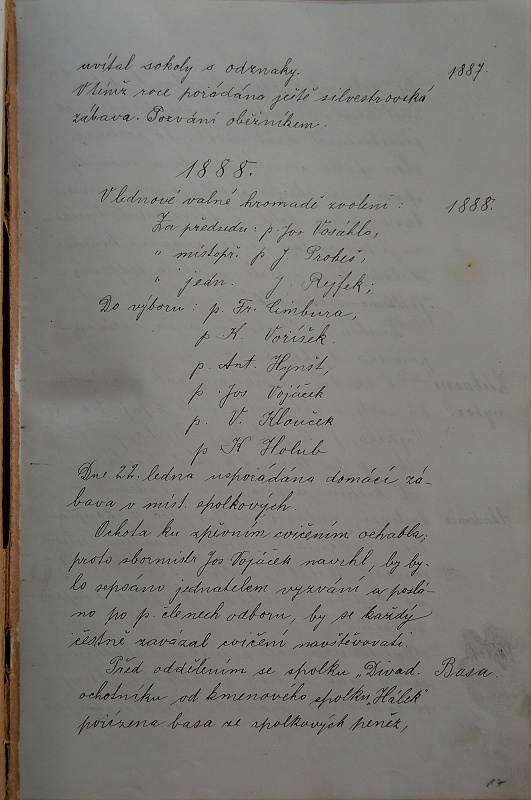 uvítal sokoly s odznaky. 1887.
V témž roce pořádána ještě silvestrovská
zábava. Pozvání oběžníkem.
1888.
V lednové valné hromadě zvoleni: 1888.
Za předsedu: p. Jos Vosáhlo,
" místopř. p J Probeš,
" jedn. J Rejfek;
Do výboru: p. Fr. Cimbura,
p K. Voříšek.
p. Ant. Hynšt,
p. Jos Vojáček
p. V. Klouček
p K Holub
Dne 22. ledna uspořádána domácí zá-
bava v míst. spolkových.
Ochota ku zpěvním cvičením ochabla;
proto sbormistr Jos Vojáček navrhl, by by-
lo sepsáno jednatelem vyzvání a poslá-
no po p. členech odboru, by se každý
čestně zavázal cvičení navštěvovati.
Před oddělením se spolku „Divad. Basa.
ochotníku od kmenového spolku „Hálek"
pořízena basa ze spolkových peněz,